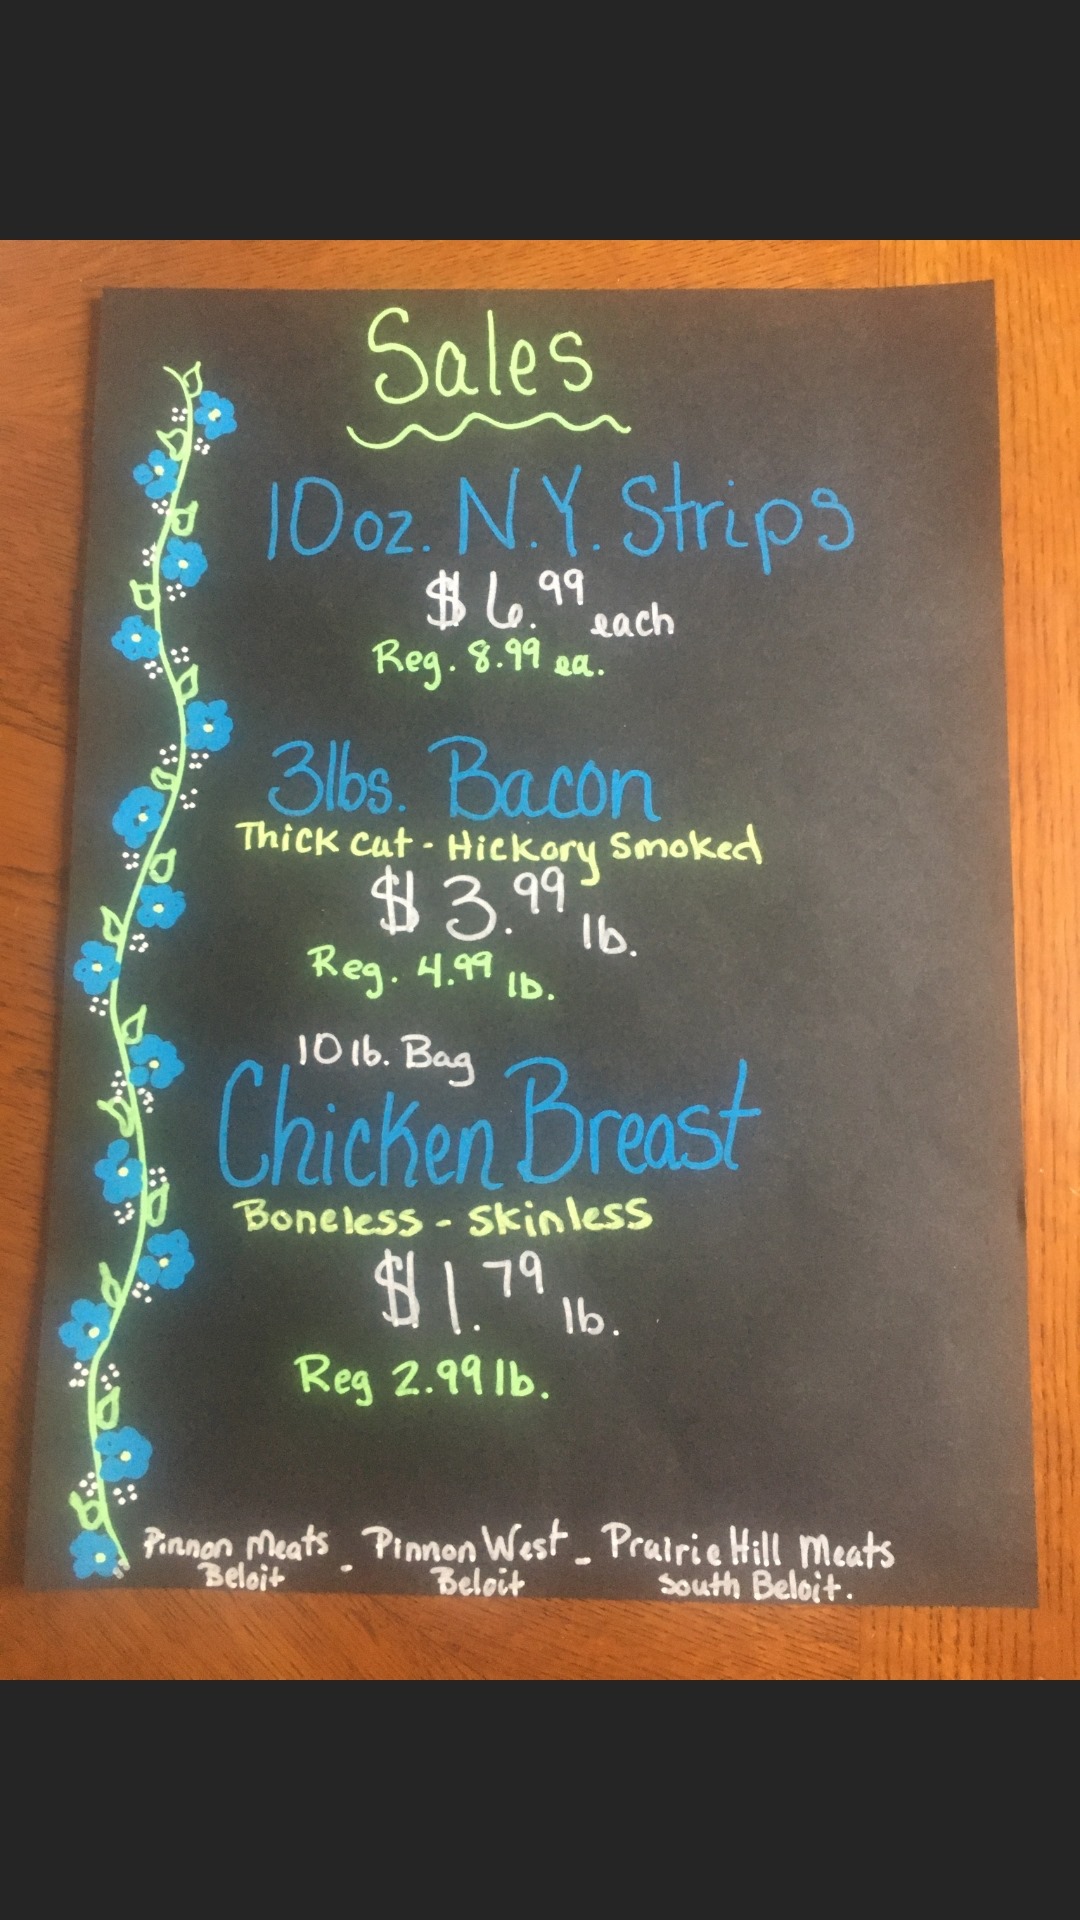 Sales
10 oz. N.Y. Strips
$6.99 each
Reg. 8.99 ea.
3lbs. Bacon
Thick Cut - Hickory Smoked
$3.99 lb.
Reg. 4.99 lb.
10 lb. Bag
Chicken Breast
Boneless - Skinless
$1.79 lb.
Reg 2.99 lb.
Pinnon Meats - Pinnon West - Prairie Hill Meats
Beloit Beloit South Beloit.